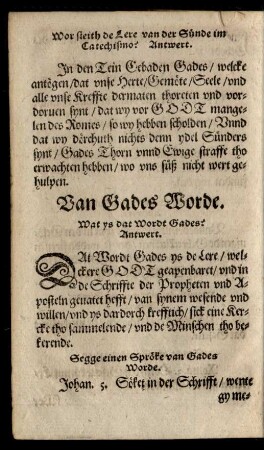 Wor steith de Lere van der Sünde im
Catechismo? Antwert.
In den Tein Gebaden Gades / welcke
antögen / dat vnse Herte / Gemöte / Seele / vnd
alle vnse Kreffte dermaten thoreten vnd vor-
doruen synt / dat wy vor GODT mange-
len des Romes / so wy hebben scholden / Vnnd
dat wy dörchuth nichts denn ydel Sünders
synt / Gades Thorn vnnd Ewige straffe tho
erwachten hebben / wo vns süß nicht wert ge-
hulpen.
Van Gades Worde.
Wat ys dat Wordt Gades?
Antwert.
DAt Wordt Gades ys de Lere / wel-
ckere GODT geapenbaret / vnd in
de Schriffte der Propheten vnd A-
posteln geuatet hefft / van synem wesende vnd
willen / vnd ys dardorch krefftich / sick eine Ker-
cke tho sammelende / vnd de Minschen tho be-
kerende.
Segge einen Spröke van Gades
Worde.
Johan. 5. Söket in der Schrifft / wente
gy me-